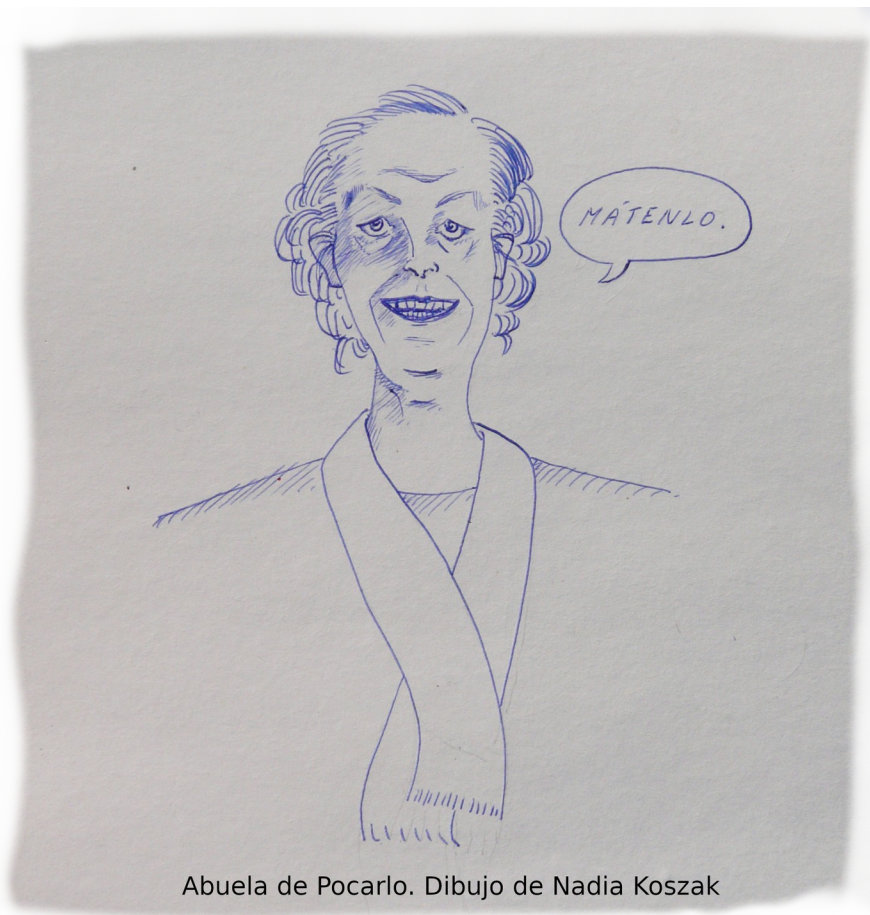 MÁTENLO.
Abuela de Pocarlo. Dibujo de Nadia Koszak